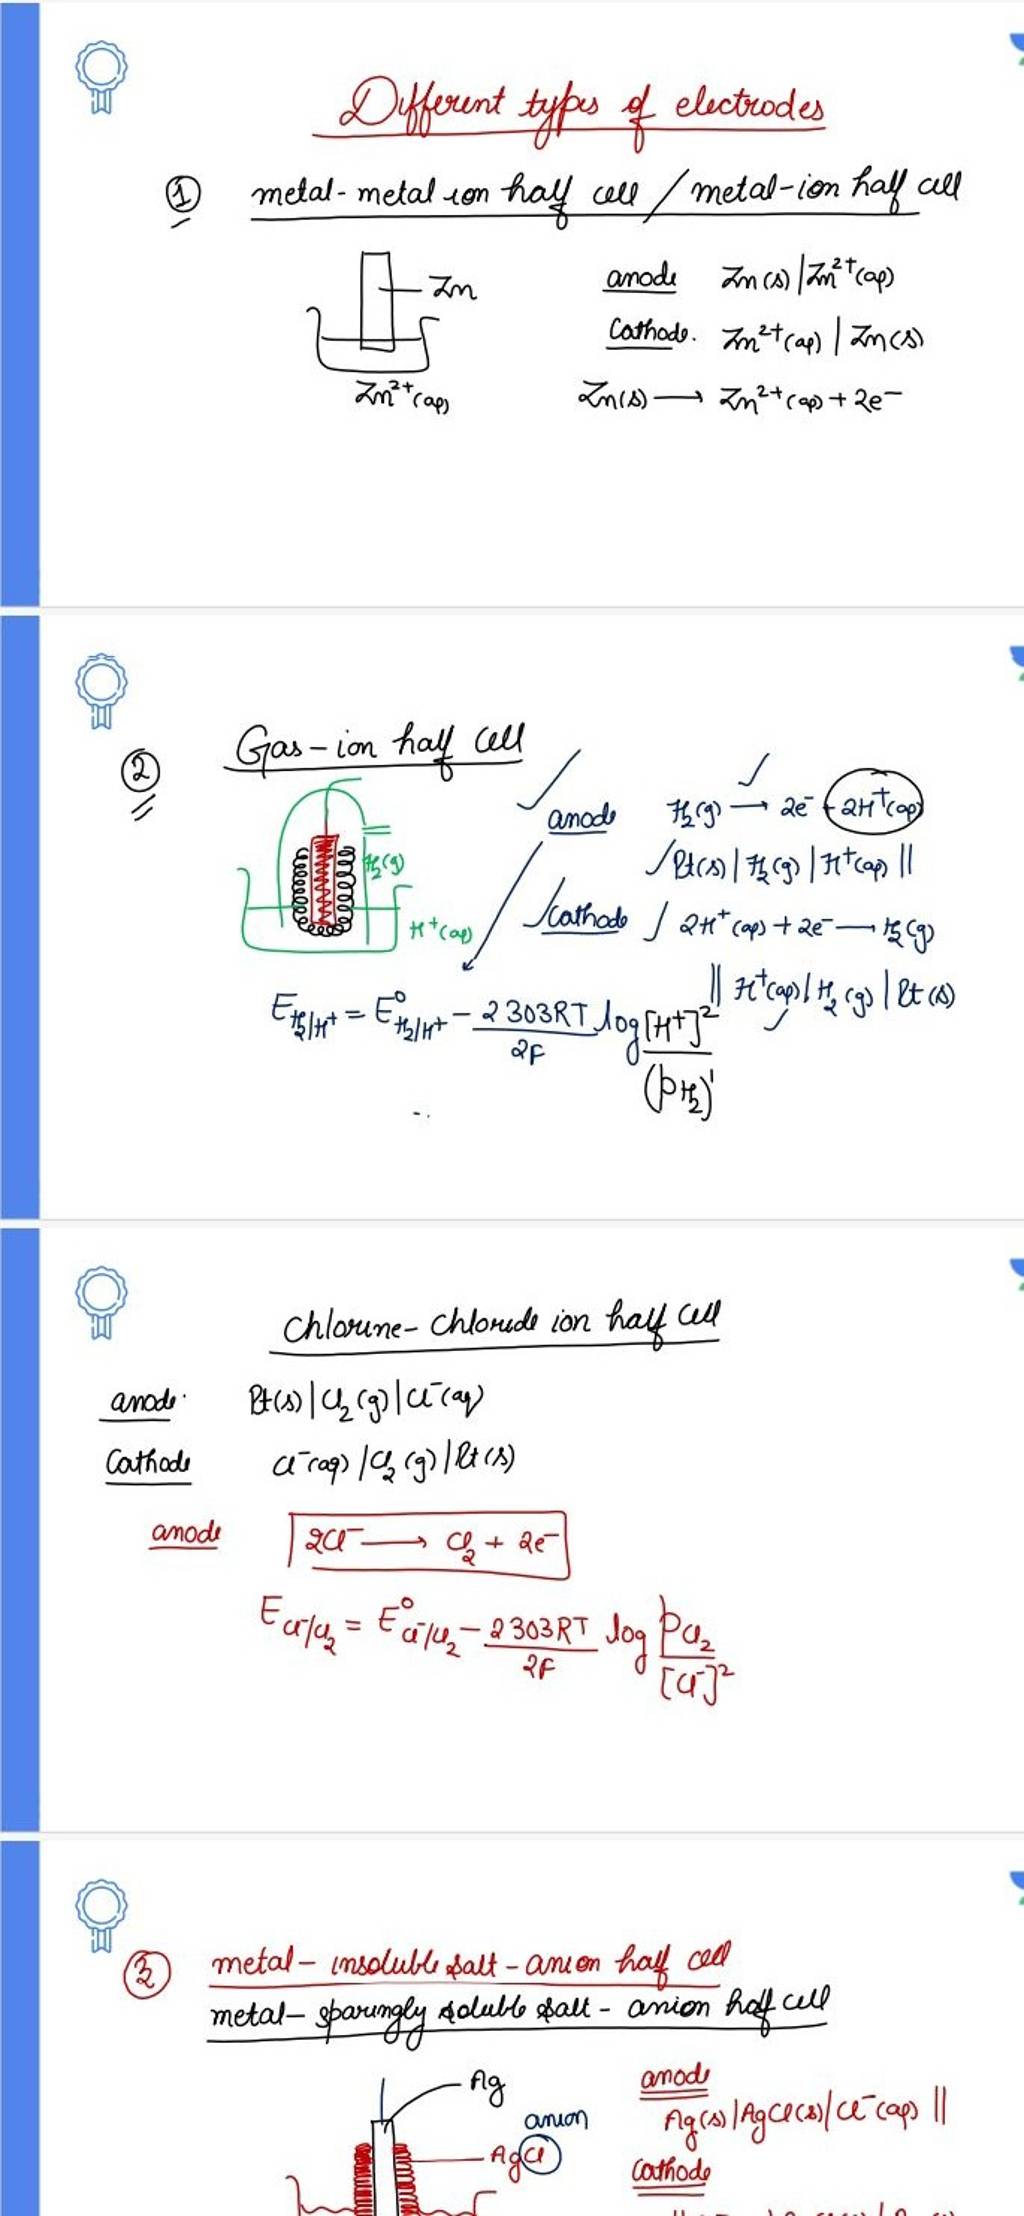 Different types of electrodes
① metal-metal ion half cell / metal-ion half cell
Zn
Zn²⁺(aq)
anode Zn(s) | Zn²⁺(aq)
Cathode. Zn²⁺(aq) | Zn(s)
Zn(s) → Zn²⁺(aq) + 2e⁻
② Gas-ion half cell
H₂(g)
H⁺(aq)
anode H₂(g) → 2e⁻ + 2H⁺(aq)
Pt(s) | H₂(g) | H⁺(aq) ||
cathode 2H⁺(aq) + 2e⁻ → H₂(g)
|| H⁺(aq) | H₂(g) | Pt(s)
E H₂/H⁺ = E° H₂/H⁺ - 2303RT/2F log [H⁺]²/(pH₂)¹
Chlorine-chloride ion half cell
anode. Pt(s) | Cl₂(g) | Cl⁻(aq)
Cathode Cl⁻(aq) | Cl₂(g) | Pt(s)
anode 2Cl⁻ → Cl₂ + 2e⁻
E Cl⁻/Cl₂ = E° Cl⁻/Cl₂ - 2303RT/2F log pCl₂/[Cl⁻]²
③ metal-insoluble salt-anion half cell
metal-sparingly soluble salt-anion half cell
Ag
anion
AgCl
anode
Ag(s) | AgCl(s) | Cl⁻(aq) ||
Cathode